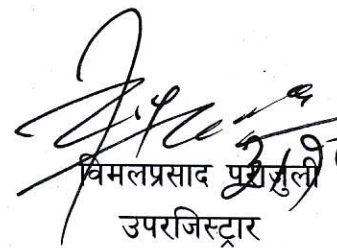 विमलप्रसाद पराजुली
उपरजिस्ट्रार